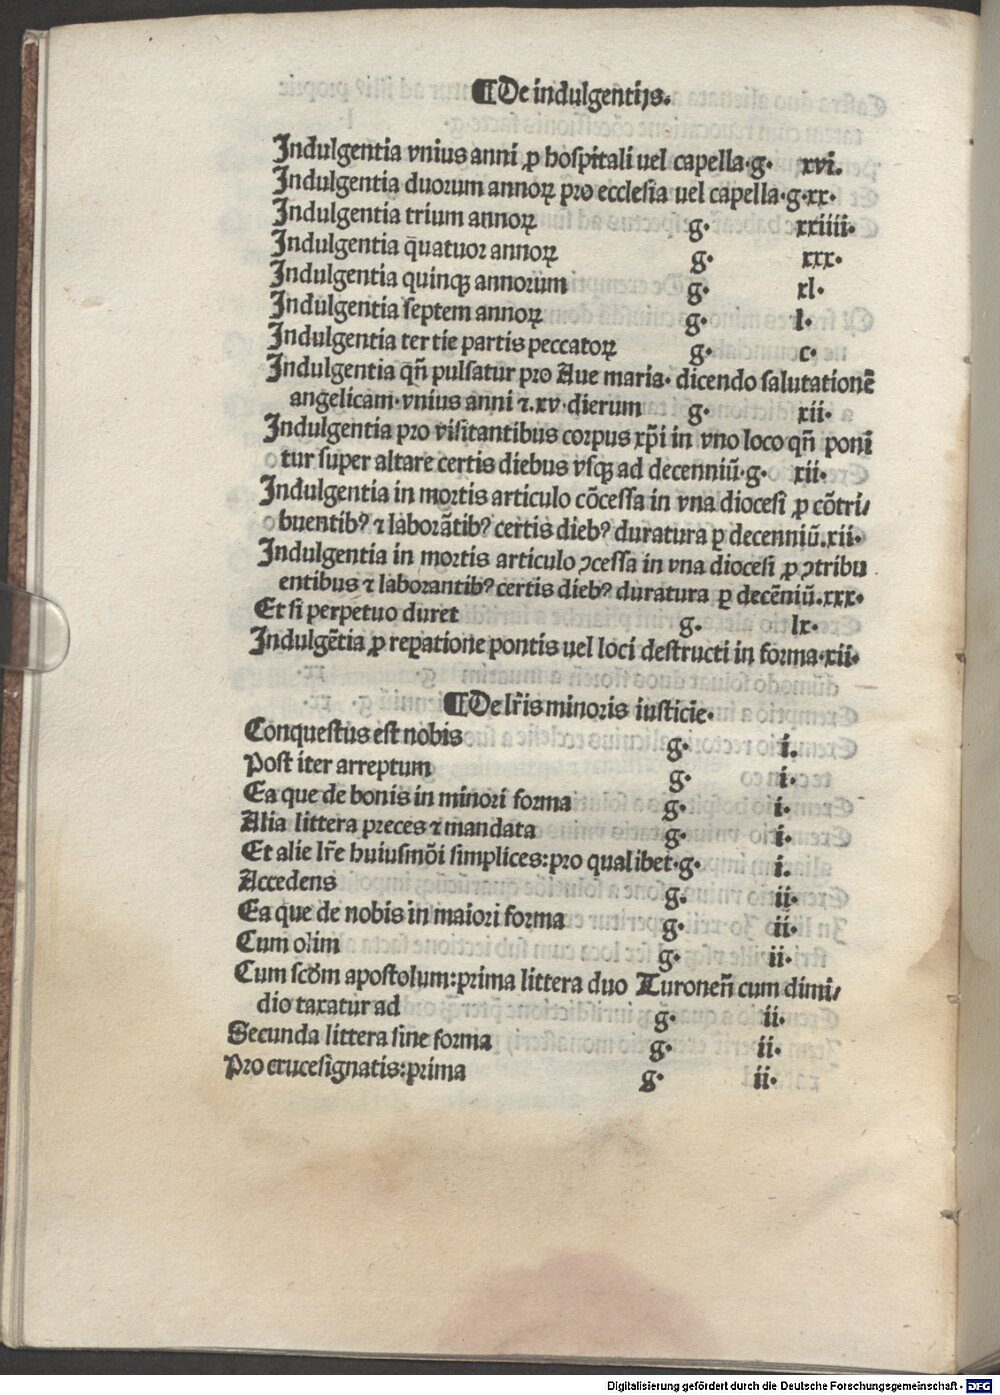 ¶De indulgentijs.
Indulgentia vnius anni ꝓ hospitali uel capella·g· xvi.
Indulgentia duorum annoꝝ pro ecclesia uel capella·g·xx·
Indulgentia trium annoꝝ g· xxiiii·
Indulgentia q̄uatuor annoꝝ g· xxx·
Indulgentia quinqꝫ annorum g· xl·
Indulgentia septem annoꝝ g· l·
Indulgentia tertie partis peccatoꝝ g· c·
Indulgentia qn̄ pulsatur pro Aue maria· dicendo salutationē
angelicam·vnius anni ⁊.xv·dierum g· xii·
Indulgentia pro visitantibus corpus xp̄i in vno loco qn̄ poni
tur super altare certis diebus vsqꝫ ad decenniū·g· xii·
Indulgentia in mortis articulo cōcessa in vna diocesi ꝓ cōtri/
buentibꝰ ⁊ laborātibꝰ certis diebꝰ duratura ꝑ decenniū.xii·
Indulgentia in mortis articulo ↄcessa in vna diocesi ꝓ ↄtribu
entibus ⁊ laborantibꝰ certis diebꝰ duratura ꝑ decēniū.xxx·
Et si perpetuo duret g· lx·
Indulgētia ꝓ reꝑatione pontis uel loci destructi in forma·xii·
¶De lr̄is minoris iusticie·
Conquestus est nobis g· i.
Post iter arreptum g· i·
Ea que de bonis in minori forma g· i·
Alia littera preces ⁊ mandata g· i·
Et alie lr̄e huiusmōi simplices:pro qualibet·g· i.
Accedens g· ii·
Ea que de nobis in maiori forma g· ii·
Cum olim g· ii·
Cum scd̄m apostolum:prima littera duo Turoneñ cum dimi/
dio taxatur ad g· ii·
Secunda littera sine forma g· ii·
Pro crucesignatis:prima g· ii·
Digitalisierung gefördert durch die Deutsche Forschungsgemeinschaft - DFG